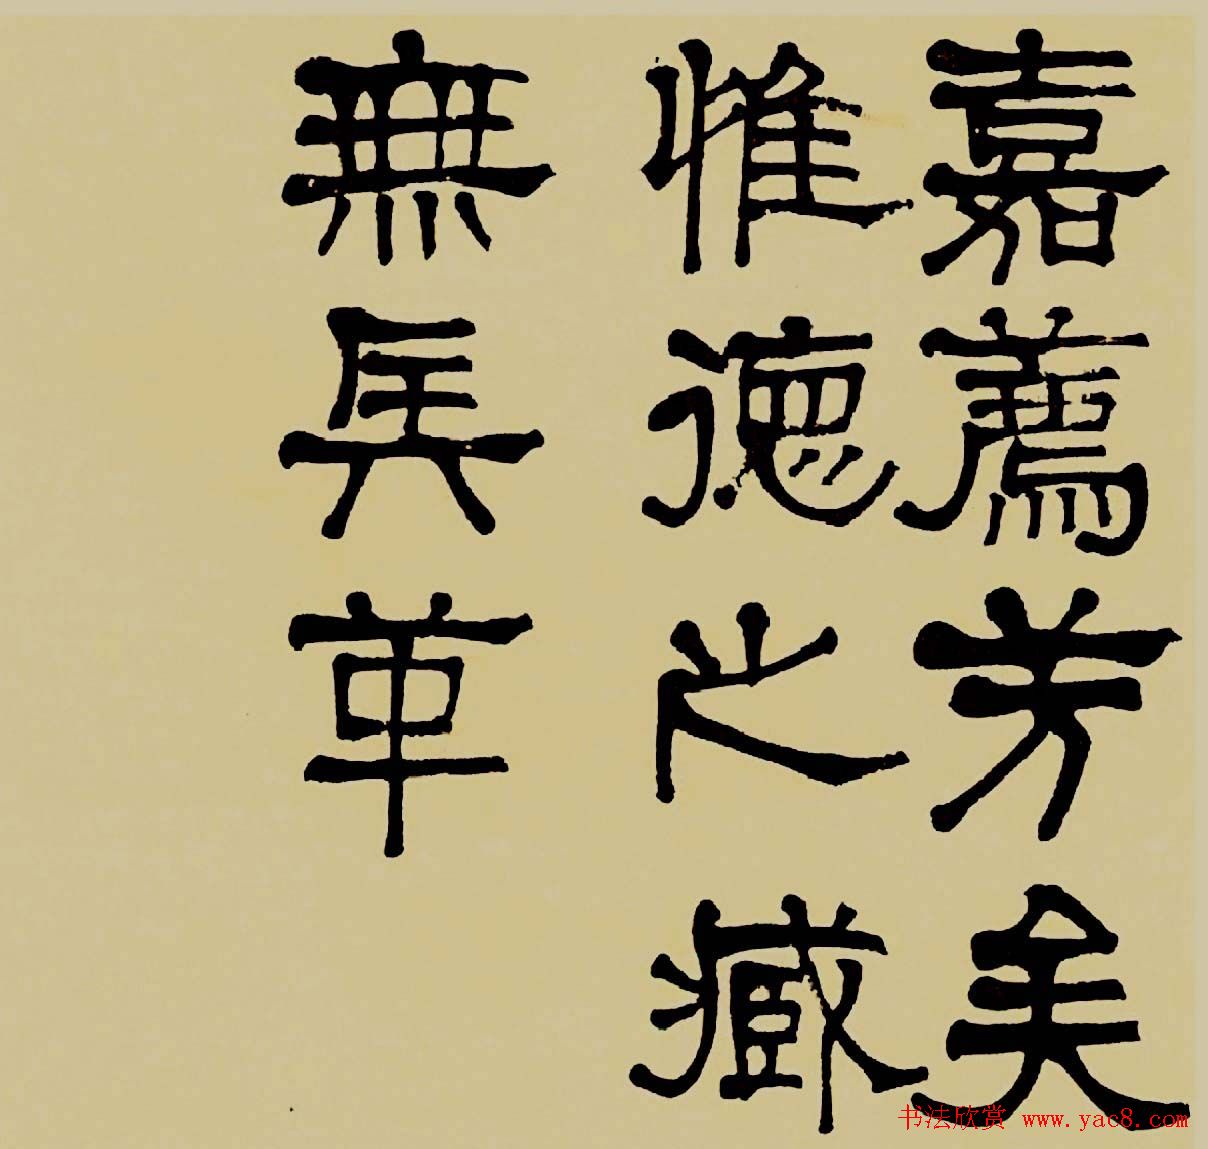 嘉薦芳矣
惟德之臧
無兵革
书法欣赏 www.yac8.com